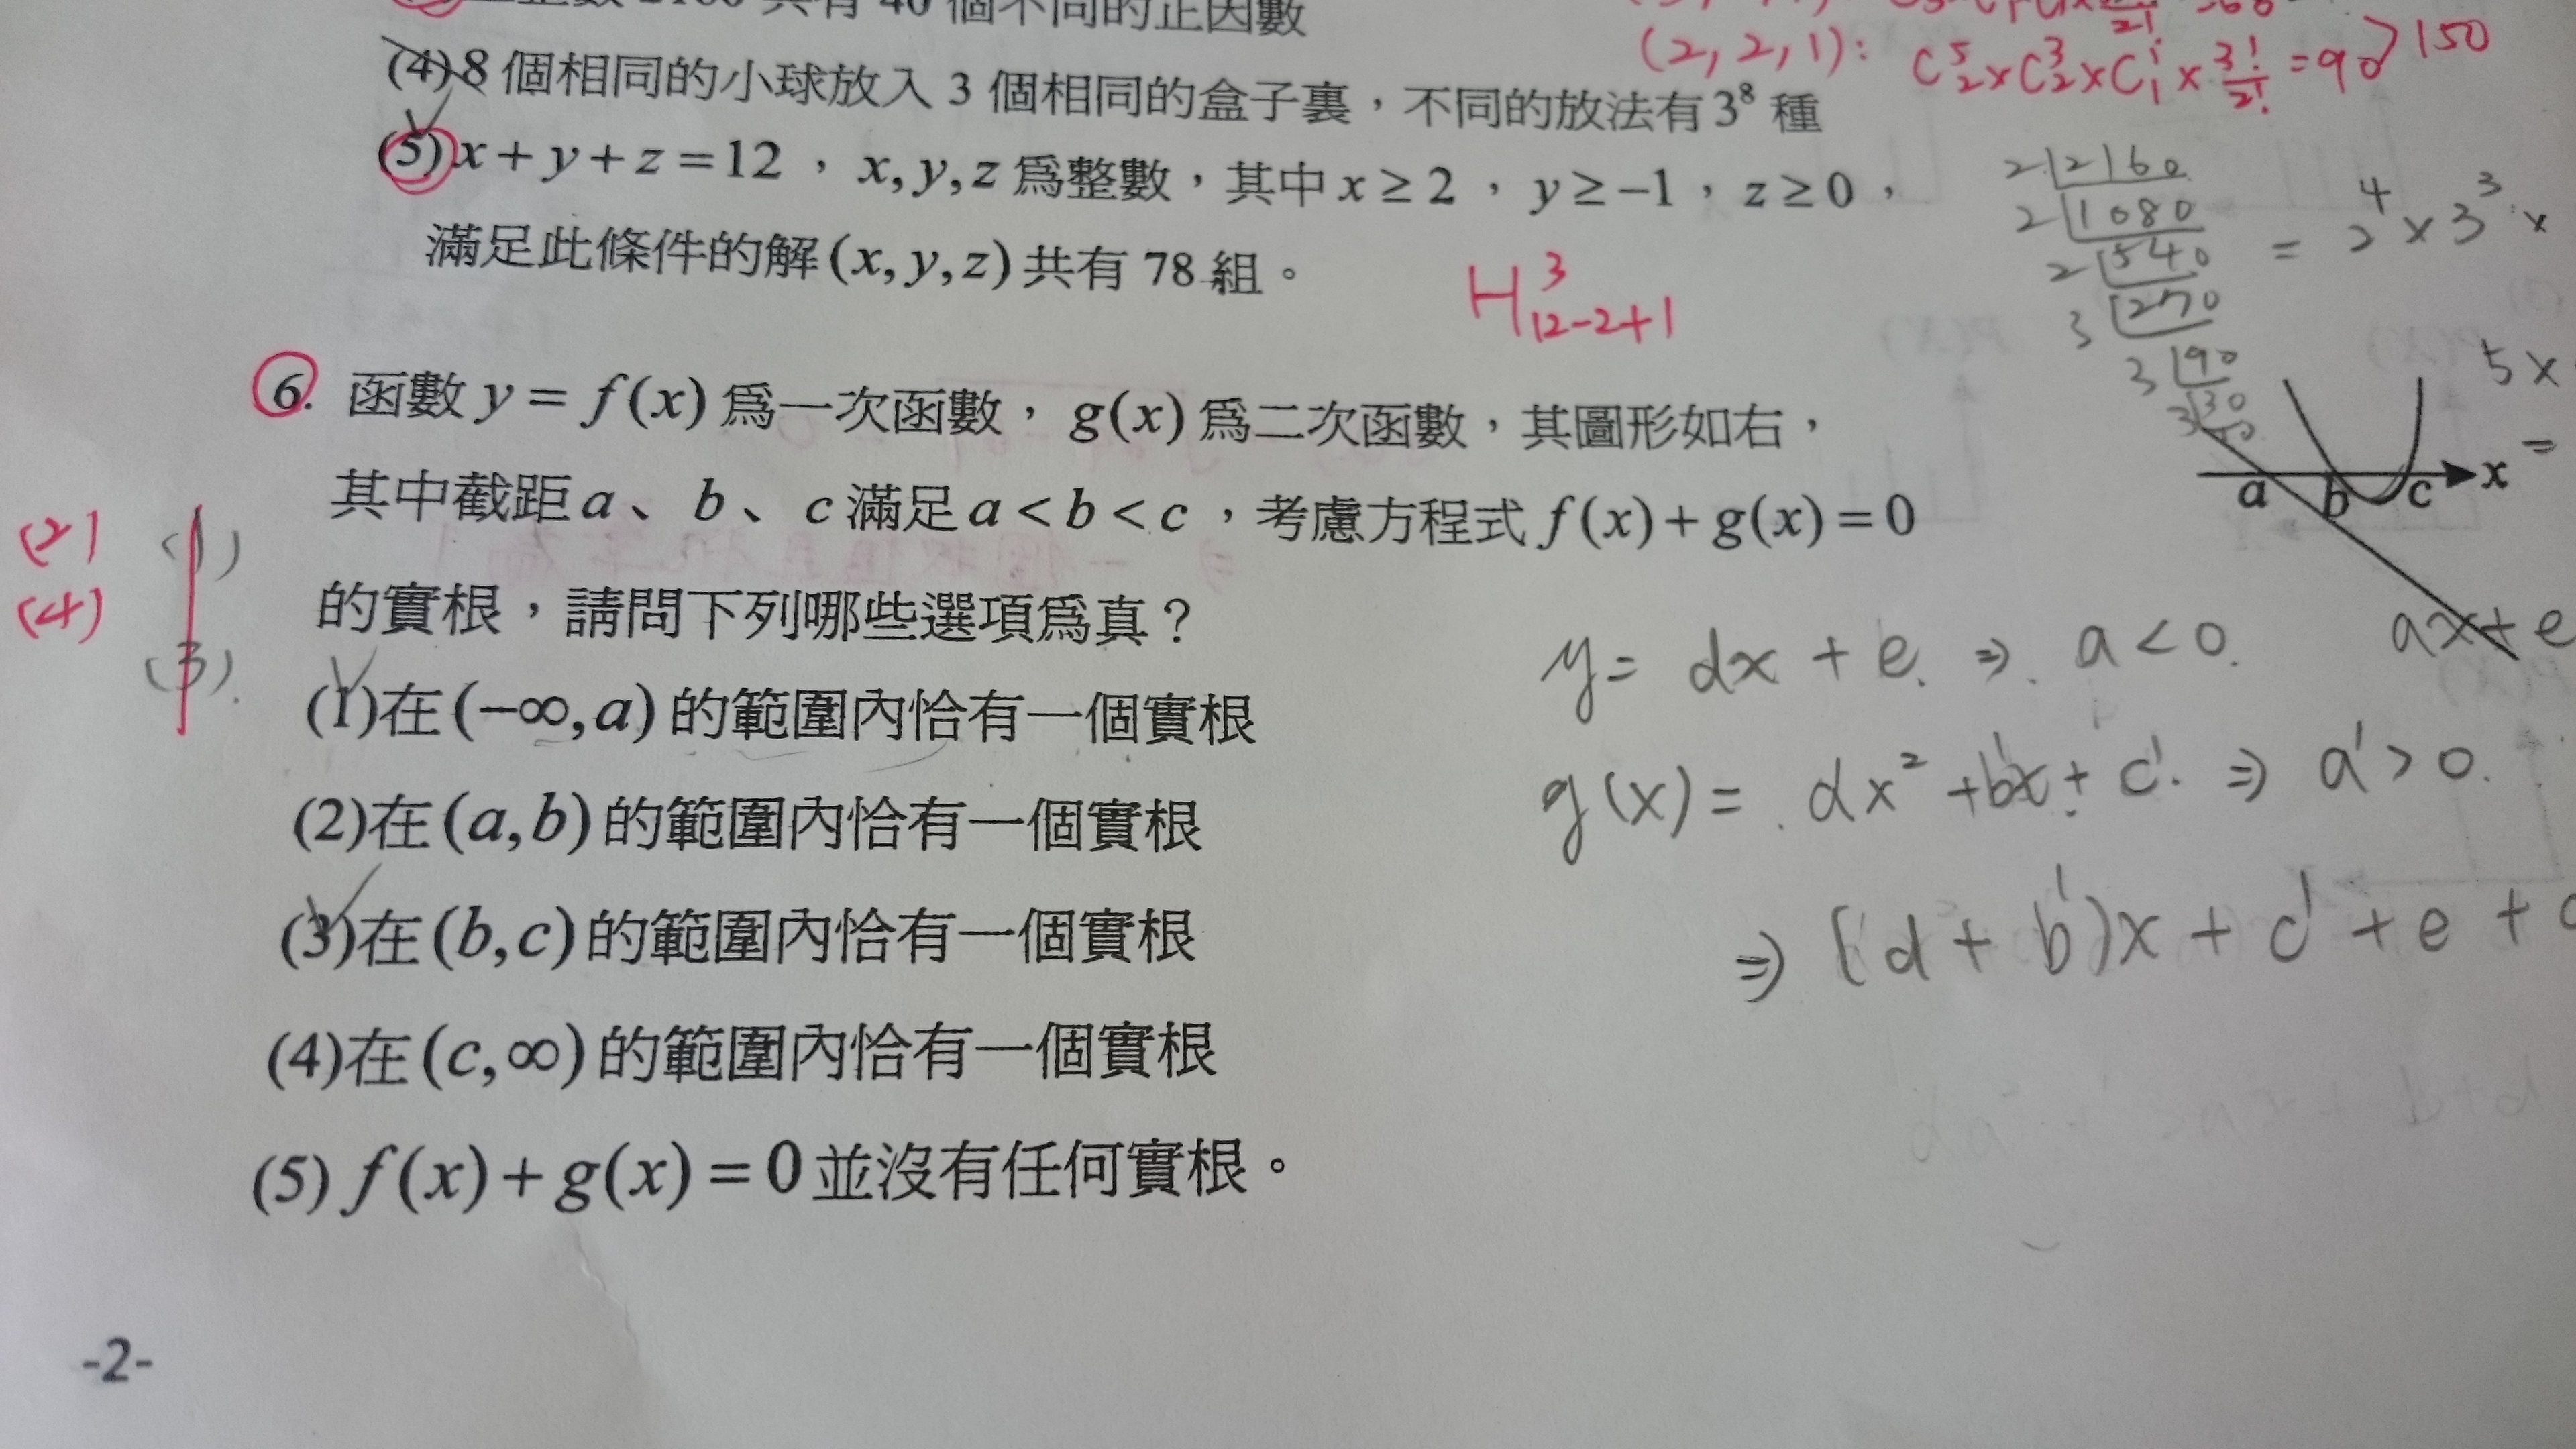 共有 40 個不同的正因數
(4) 8 個相同的小球放入 3 個相同的盒子裏，不同的放法有 3⁸ 種
(2, 2, 1): C⁵₂×C³₂×C¹₁×3!/2! = 90
150
(5) x + y + z = 12，x, y, z 為整數，其中 x ≥ 2，y ≥ −1，z ≥ 0，
滿足此條件的解 (x, y, z) 共有 78 組。
H³₁₂₋₂₊₁
2 | 2160
2 | 1080
2 | 540
3 | 270
3 | 90
3 | 30
= 2⁴ × 3³ ×
5 ×
=
6. 函數 y = f(x) 為一次函數，g(x) 為二次函數，其圖形如右，
其中截距 a、b、c 滿足 a < b < c，考慮方程式 f(x) + g(x) = 0
的實根，請問下列哪些選項為真？
a b c x
(2) (1)
(4) (3).
(1)在 (−∞, a) 的範圍內恰有一個實根
(2)在 (a, b) 的範圍內恰有一個實根
(3)在 (b, c) 的範圍內恰有一個實根
(4)在 (c, ∞) 的範圍內恰有一個實根
(5) f(x) + g(x) = 0 並沒有任何實根。
y = dx + e. ⇒ a < 0.
ax + e
g(x) = dx² + b'x + c'. ⇒ a' > 0.
⇒ (d + b')x + c' + e +
-2-